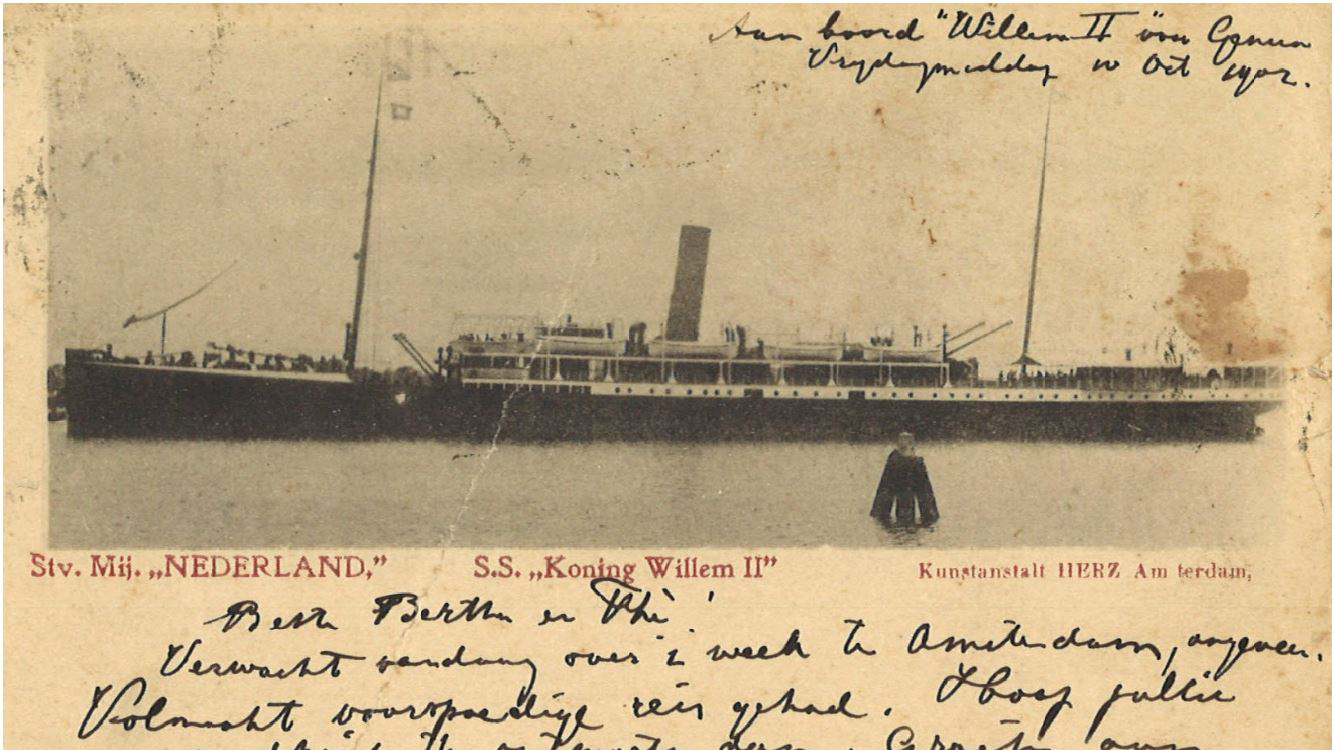 Aan boord "Willem II" vóór Genua
Vrydagmiddag 10 Oct 1902.
Stv. Mij. „NEDERLAND,”
S.S. „Koning Willem II”
Kunstanstalt HERZ Am terdam,
Beste Bertha en Thé!
Verwacht vandaag over 1 week te Amsterdam, ongeveer.
Volmaakt voorspoedige reis gehad. Hoop jullie